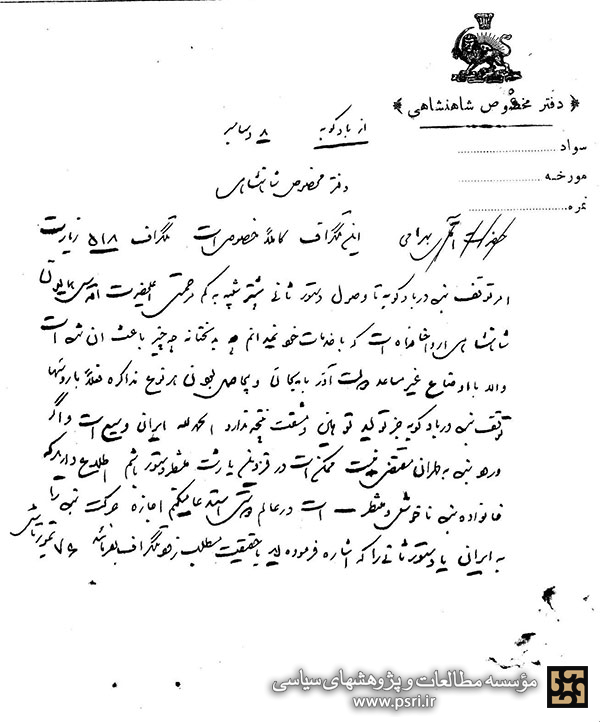 ﴿ دفتر مخصوص شاهنشاهی ﴾
سواد
مورخه
نمره
از بادکوبه ۸ دسامبر
دفتر مخصوص شاهنشاهی
آقای بهرامی این تلگراف کاملاً خصوصی است تلگراف ۵۱۸ زیارت
امر توقف بنده در بادکوبه تا وصول دستور ثانی بیشتر شبیه به کم مرحمتی اعلیحضرت اقدس همایونی
شاهنشاهی ارواحنا فداه است که با خدمات خود نمیدانم چه بدبختانه چه چیز باعث آن شده است
والا با اوضاع غیر مساعد دولت آذربایجان و بیحاصل بودن هر نوع مذاکره فعلاً با روسها
توقف بنده در بادکوبه جز تولید توهین و مشقت نتیجه ندارد الحمدلله ایران وسیع است و اگر
ورود بنده به طهران مقتضی نیست ممکن است در قزوین یا رشت منتظر دستور باشم اطلاع دارید که
خانواده بنده ناخوش و منتظر است در عالم دوستی استدعا میکنم اجازه حرکت بنده را
به ایران یا دستور ثانی را که اشاره فرموده‌اید با حقیقت مطلب زودتر تلگراف بفرمائید ۷۶ تیمورتاش
مؤسسه مطالعات و پژوهشهای سیاسی
www.psri.ir